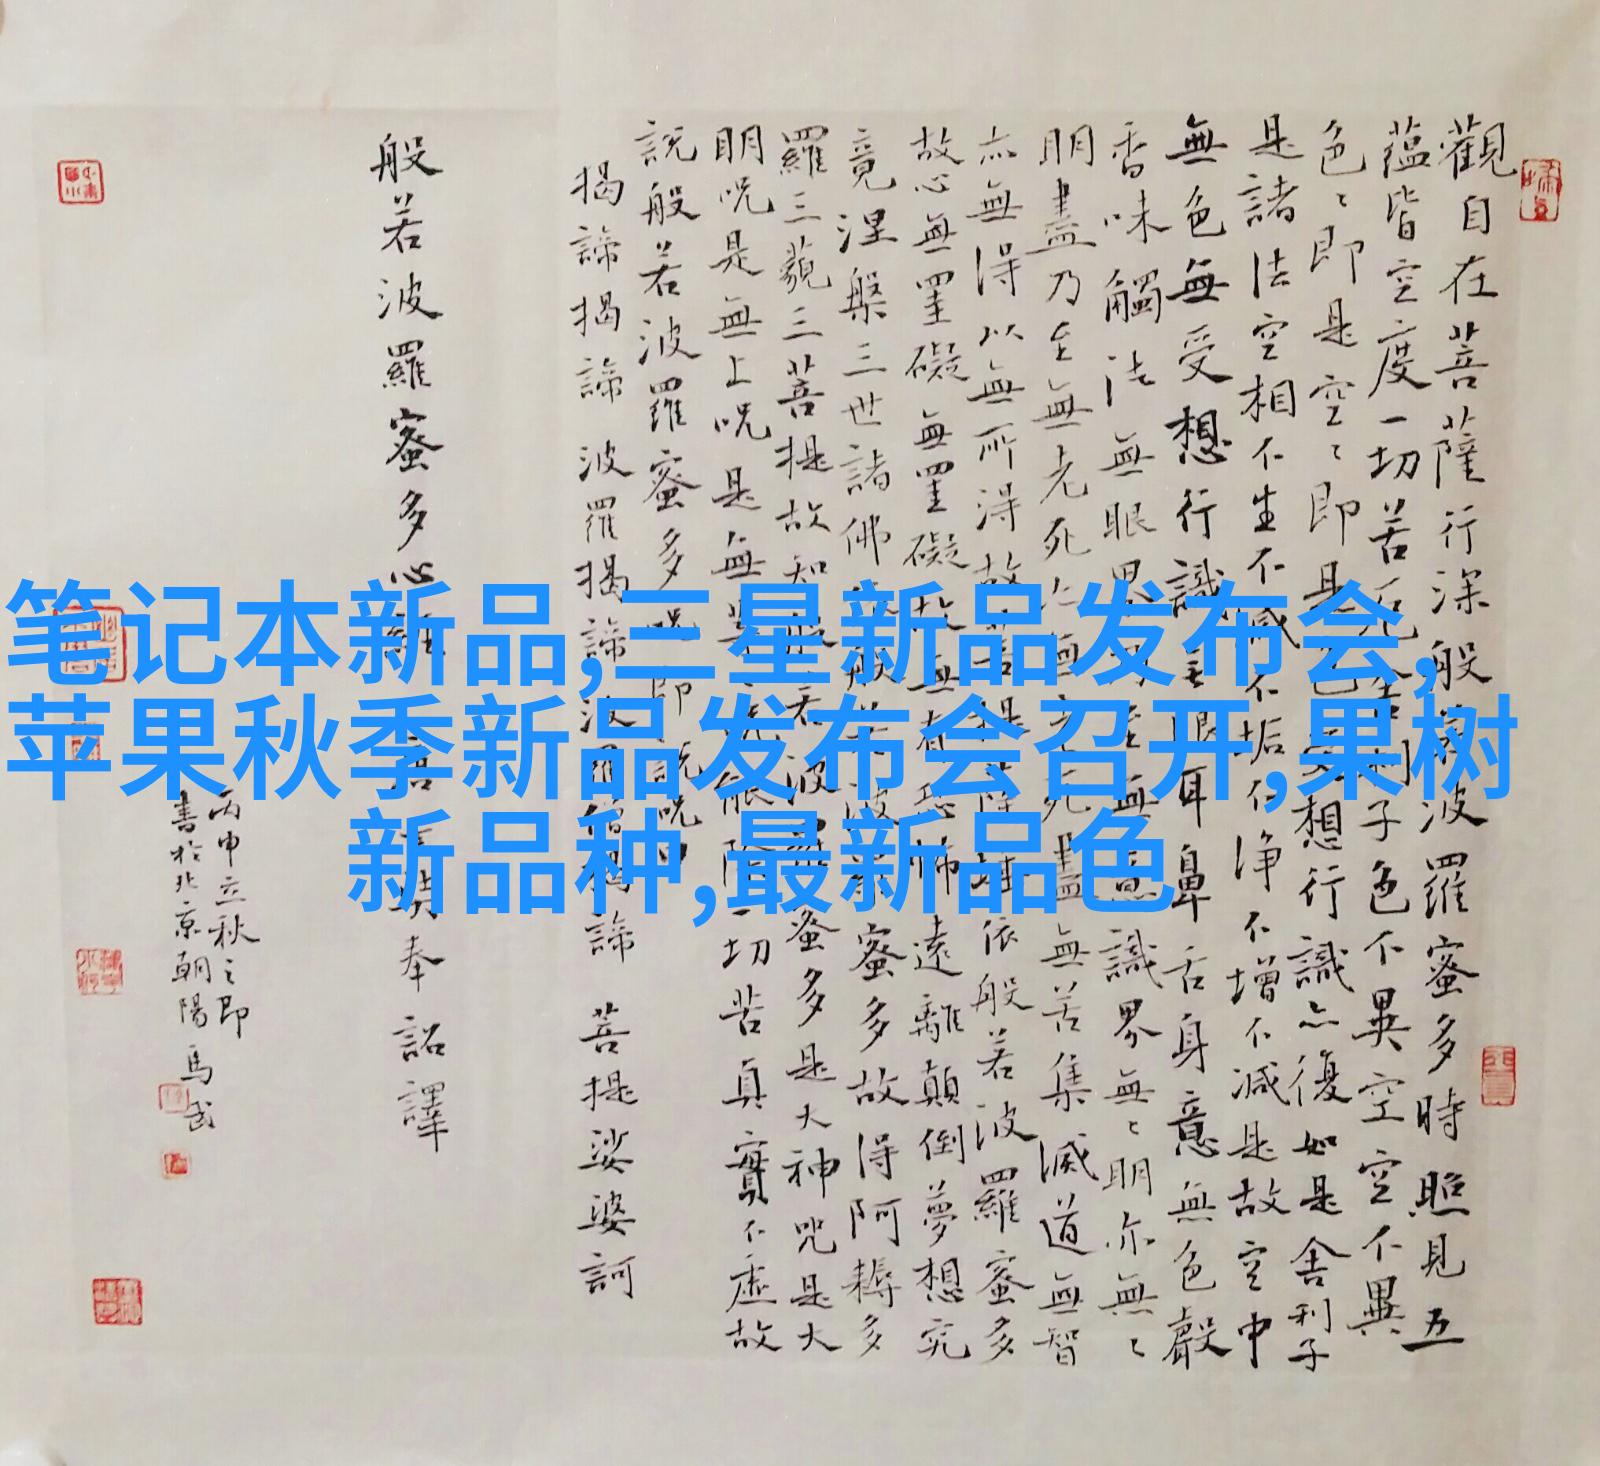 笔记本新品,三星新品发布会,
苹果秋季新品发布会召开,果树
新品种,最新品色
觀自在菩薩行深般若波羅蜜多時照見五
蘊皆空度一切苦厄舍利子色不異空空不異
色〻即是空〻即是色受想行識亦復如是舍利子
是諸法空相不生不滅不垢不净不增不減是故空中
無色無受想行識無眼耳鼻舌身意無色聲
香味觸法無眼界乃至無意識界無〻明亦無〻
明盡乃至無老死亦無老死盡無苦集滅道無智
亦無得以無所得故菩提薩埵依般若波羅蜜多
故心無罣礙無罣礙故無有恐怖遠離顛倒夢想究
竟涅槃三世諸佛依般若波羅蜜多故得阿耨多
羅三藐三菩提故知般若波羅蜜多是大神咒是大
明呪是無上呪是無等等呪能除一切苦真實不虛故
說般若波羅蜜多呪即說呪曰
揭諦揭諦 波羅揭諦 波羅僧揭諦 菩提娑婆訶
般若波羅蜜多心經 奉詔譯
丙申立秋之即
書於北京朝陽 馬